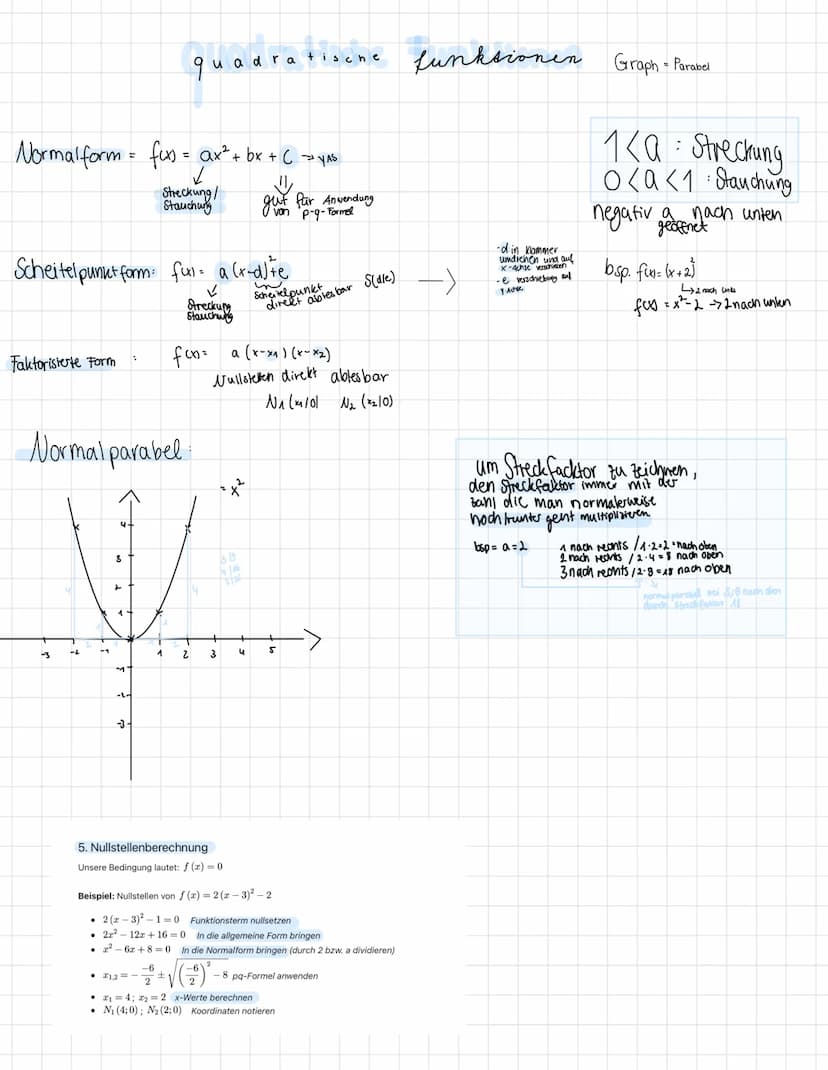 quadratische Funktionen
Graph = Parabel
Normalform = f(x) = ax² + bx + C → yAS
Streckung/
Stauchung
gut für Anwendung
von p-q-Formel
1<a : Streckung
0<a<1 : Stauchung
negativ a nach unten
geöffnet
Scheitelpunktform: f(x) = a(x-d)²+e
Streckung
Stauchung
Scheitelpunkt
direkt ablesbar S(d|e)
-d in klammer
umdrehen und auf
x-Achse verschieben
-e verschiebung auf
y Achse
bsp. f(x)=(x+2)²
↳2 nach links
f(x) = x²-2 → 2 nach unten
Faktorisierte Form : f(x) = a(x-x1)(x-x2)
Nullstellen direkt ablesbar
N1(x1/0) N2(x2/0)
Normalparabel:
= x²
4
3
2
1
-3 -2 -1 1 2 3 4 5
-1
-2
-3
4 4
um Streckfacktor zu zeichnen,
den Streckfaktor immer mit der
zahl die man normalerweise
hoch/runter geht multiplizieren
bsp = a = 2
1 nach rechts /1·2=2 nach oben
2 nach rechts /2·4=8 nach oben
3 nach rechts /2·9=18 nach oben
normalparabel bei 3/9 nach oben
durch Streckfaktor 18
5. Nullstellenberechnung
Unsere Bedingung lautet: f (x) = 0
Beispiel: Nullstellen von f (x) = 2 (x − 3)² − 2
• 2 (x − 3)² − 1 = 0 Funktionsterm nullsetzen
• 2x² − 12x + 16 = 0 In die allgemeine Form bringen
• x² − 6x + 8 = 0 In die Normalform bringen (durch 2 bzw. a dividieren)
• x₁,₂ = − −6/2 ± √((−6/2)² − 8) pq-Formel anwenden
• x₁ = 4 ; x₂ = 2 x-Werte berechnen
• N₁ (4; 0) ; N₂ (2; 0) Koordinaten notieren